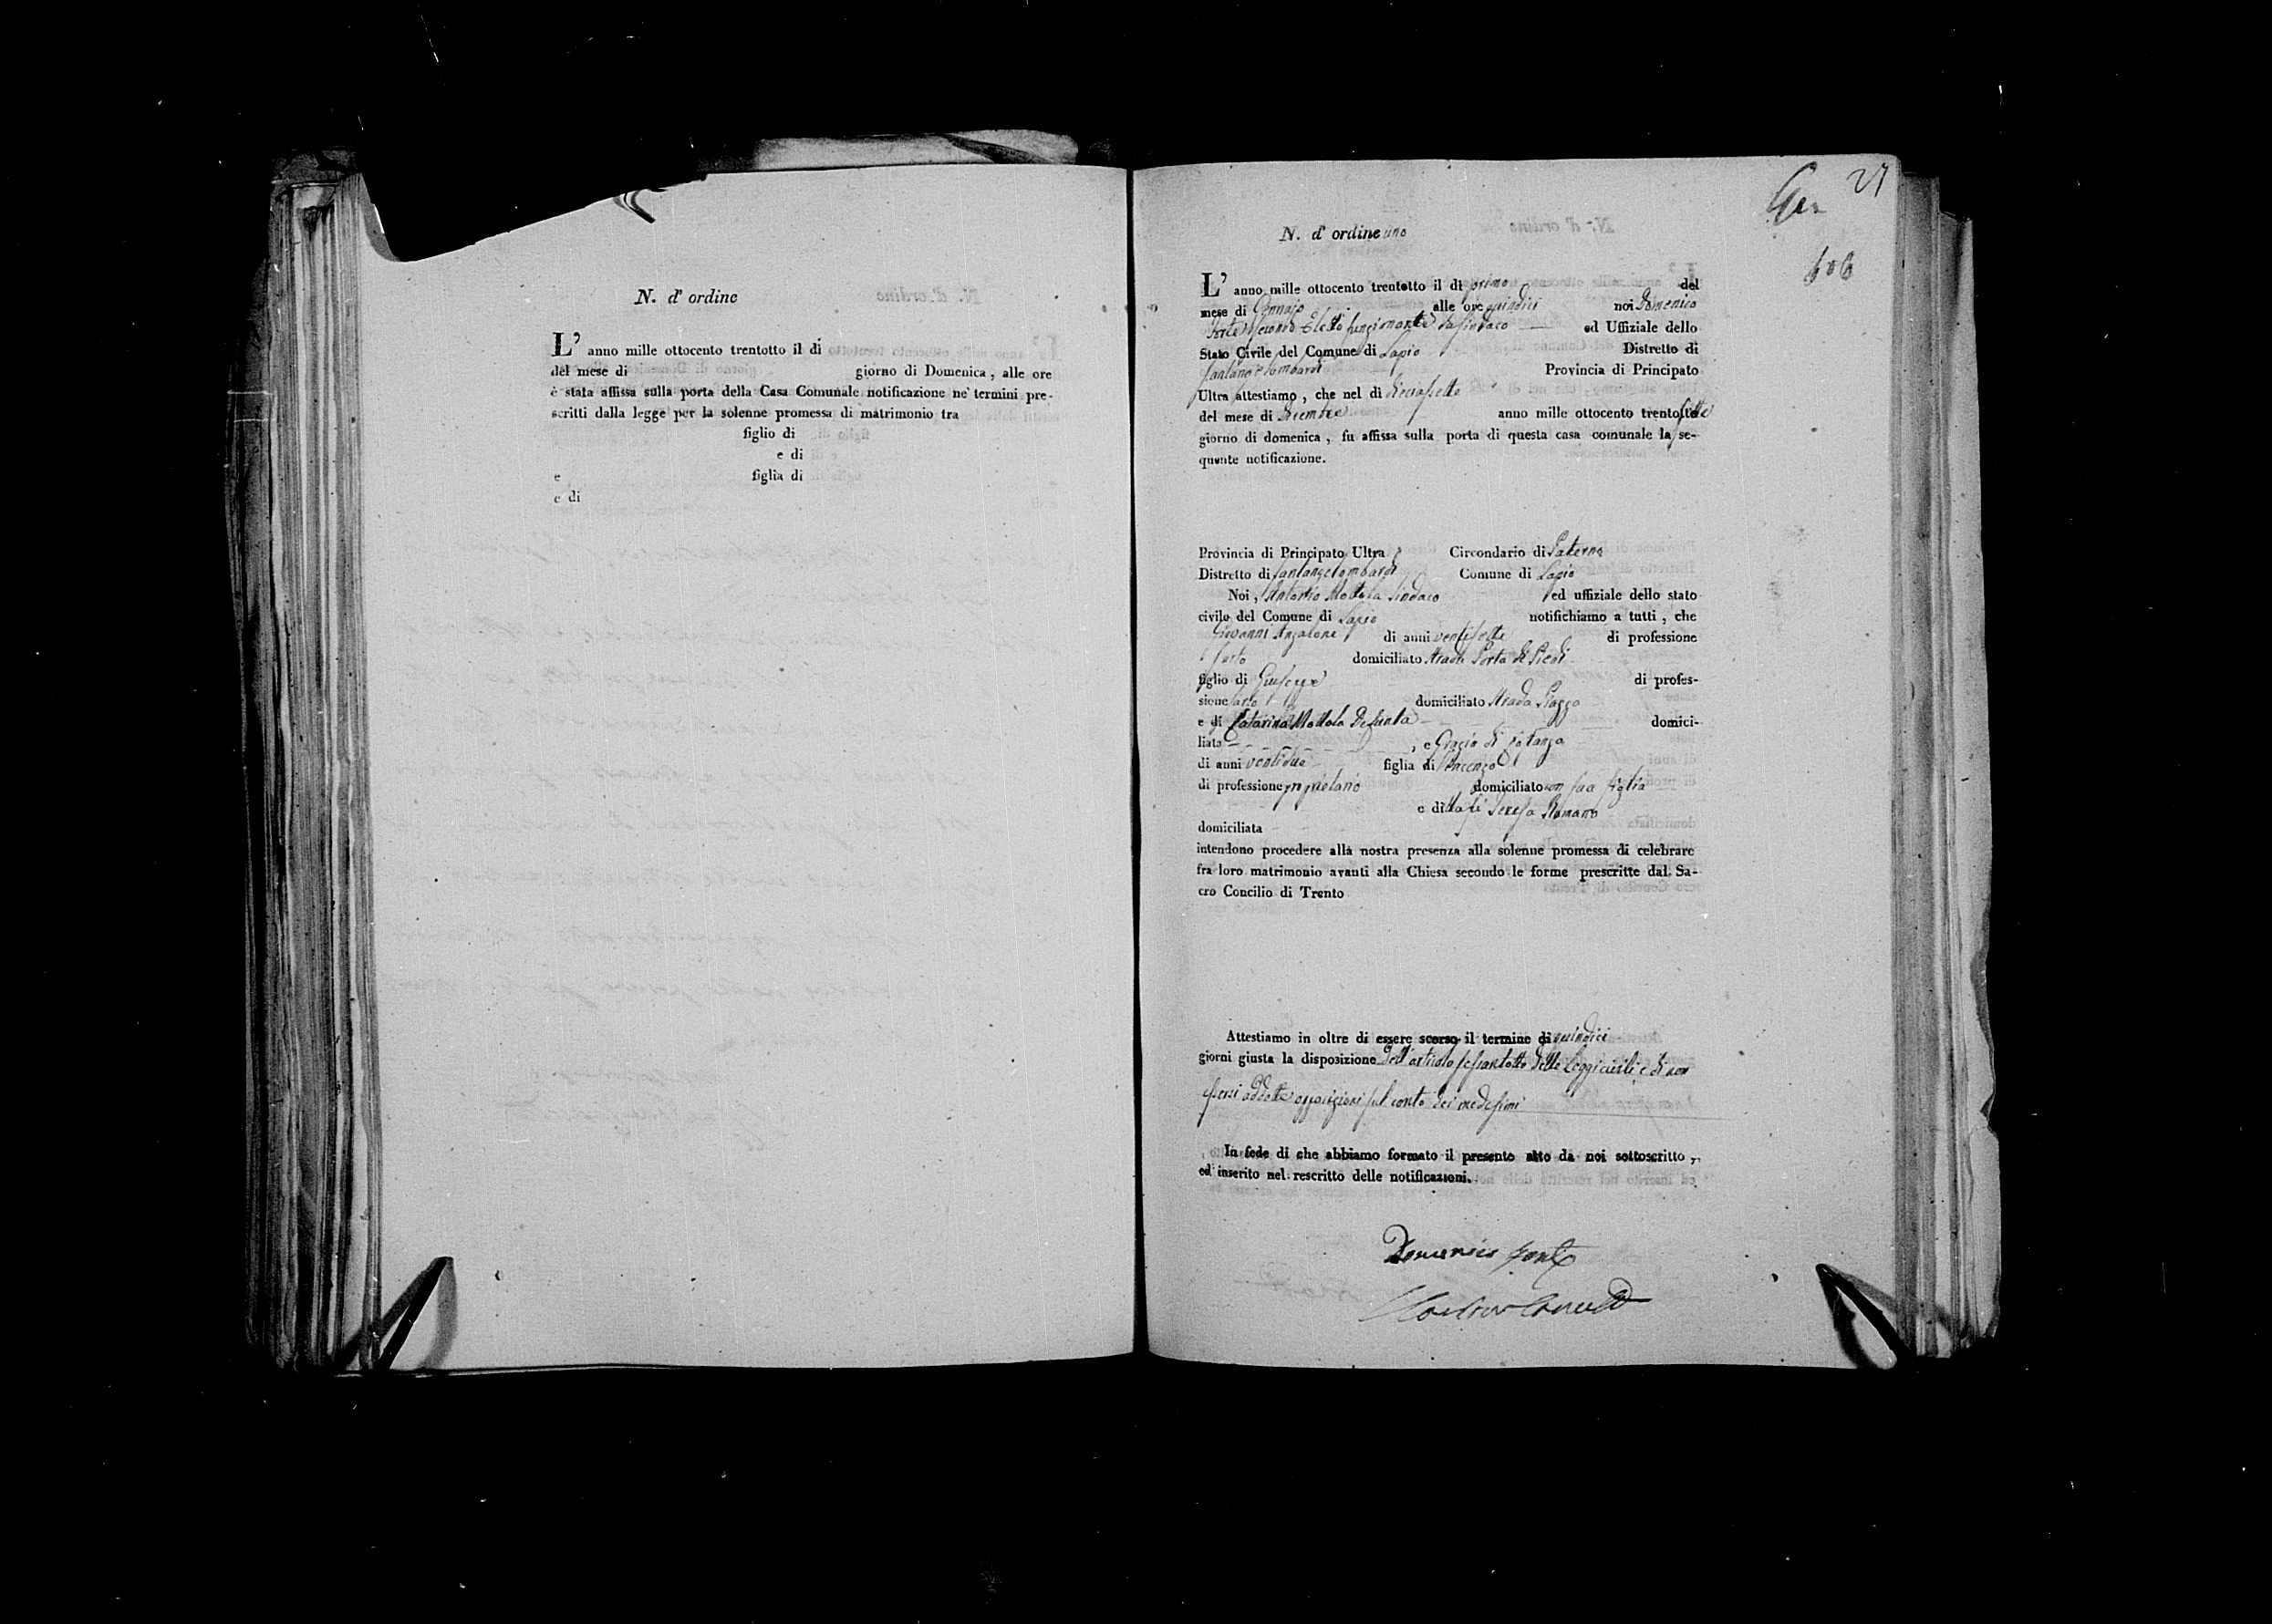 N. d' ordine
L' anno mille ottocento trentotto il dì
del mese di giorno di Domenica, alle ore
è stata affissa sulla porta della Casa Comunale notificazione ne' termini pre-
scritti dalla legge per la solenne promessa di matrimonio tra
figlio di
e di
e figlia di
e di
27
606
N. d' ordine uno
L' anno mille ottocento trentotto il dì primo del
mese di Gennajo alle ore quindici noi Domenico
Forte secondo Eletto funzionante da sindaco ed Uffiziale dello
Stato Civile del Comune di Lapio Distretto di
Santangelombardi Provincia di Principato
Ultra attestiamo, che nel dì diciassette
del mese di Decembre anno mille ottocento trentotto sette
giorno di domenica, fu affissa sulla porta di questa casa comunale la se-
quente notificazione.
Provincia di Principato Ultra Circondario di Paterno
Distretto di Santangelombardi Comune di Lapio
Noi, Antonio Mottola Sindaco ed uffiziale dello stato
civile del Comune di Lapio notifichiamo a tutti, che
Giovanni Anzalone di anni ventisette di professione
sarto domiciliato Strada Porta di Piedi
figlio di Giuseppe di profes-
sione sarto domiciliato Strada Piazza
e di Catarina Mottola Defunta domici-
liata , e Grazia di
di anni ventidue figlia di Vincenzo
di professione proprietario domiciliato con sua figlia
e di Teresa Romano
domiciliata
intendono procedere alla nostra presenza alla solenne promessa di celebrare
fra loro matrimonio avanti alla Chiesa secondo le forme prescritte dal Sa-
cro Concilio di Trento
Attestiamo in oltre di essere scorso il termine di quindici
giorni giusta la disposizione dell'articolo sessantotto delle Leggi civili e di non
essersi addotte opposizioni sul conto dei medesimi
In fede di che abbiamo formato il presente atto da noi sottoscritto,
ed inserito nel rescritto delle notificazioni.
Domenico Forte